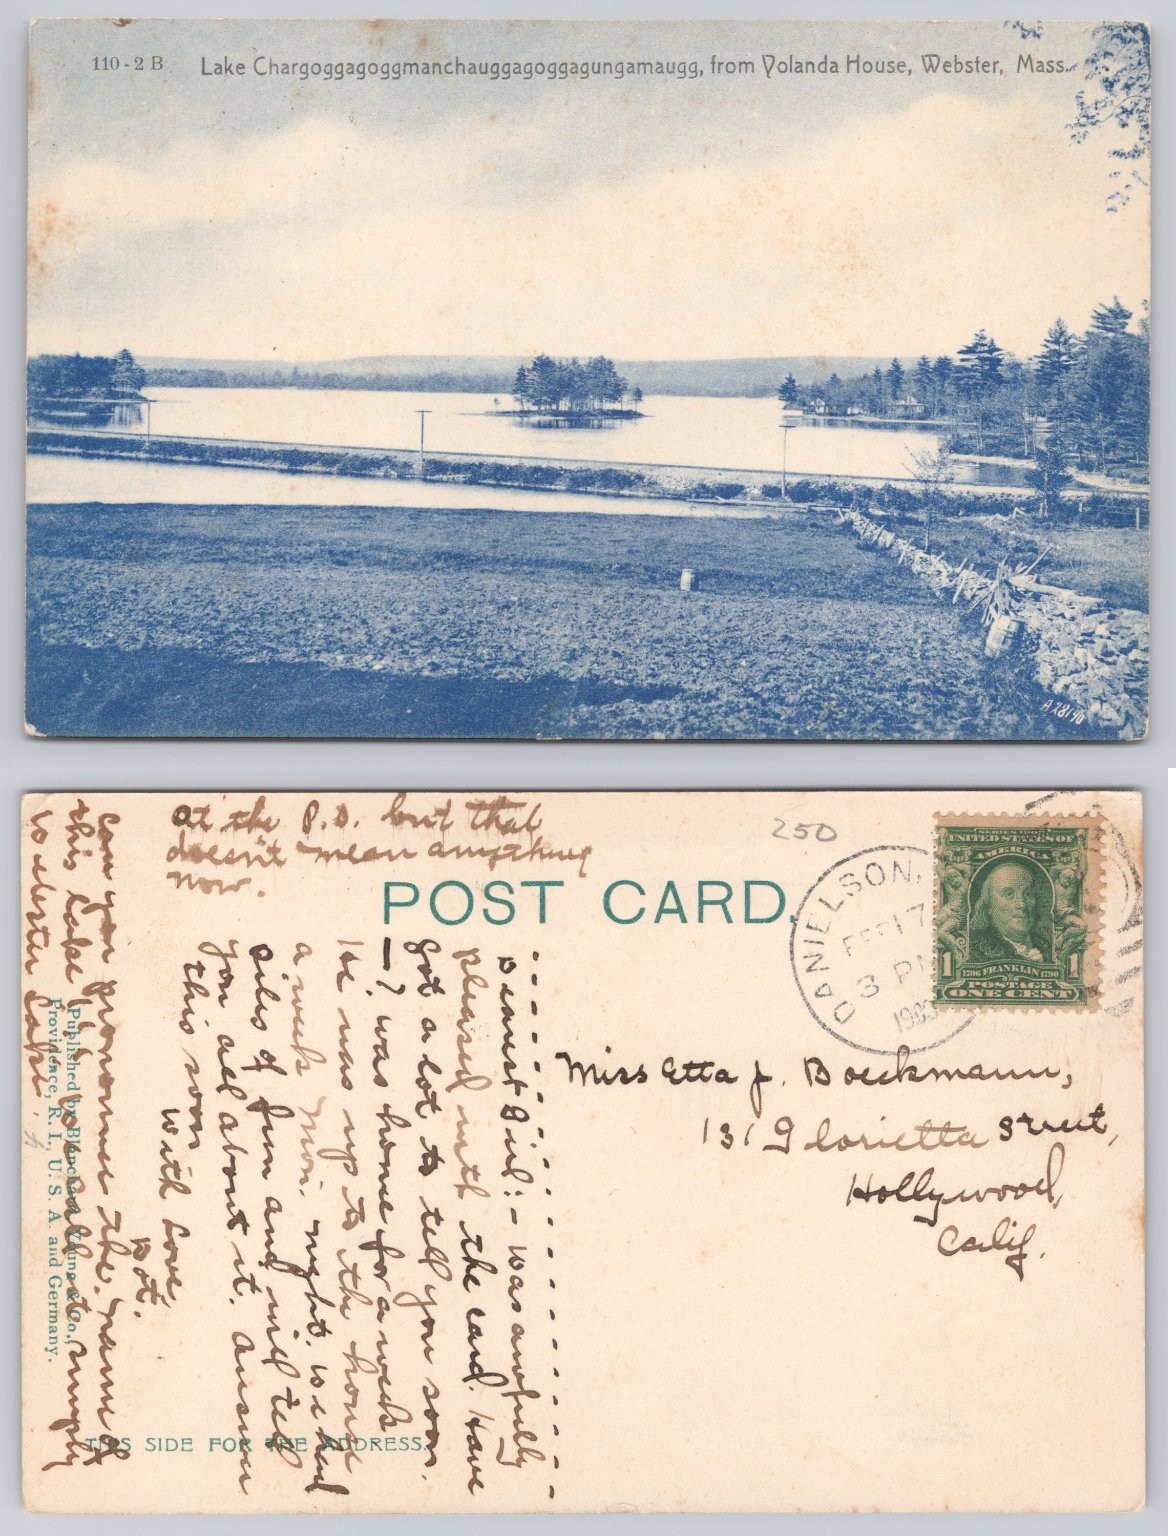 110-2 B Lake Chargoggagoggmanchauggagoggagungamaugg, from Yolanda House, Webster, Mass.
A 28140
at the P.O. but that
doesn't mean anything
now.
POST CARD.
250
DANIELSON,
FEB 17
3 PM
SERIES 1902
UNITED STATES OF
AMERICA
1706 FRANKLIN 1790
1 POSTAGE 1
ONE CENT
Dearest Girl:- Was awfully
pleased with the card. Have
got a lot to tell you soon.
—? was home for a week
he was up to the house
a week Mon. night. We had
oiles of fun and will tell
you all about it. Answer
this soon
With Love,
Dot.
Can you pronounce the name of
this lake? We call it simply
Webster Lake.
Miss Etta J. Boeckmann,
131 Glorietta Street,
Hollywood,
Calif.
Published by Blanchard, Young & Co.,
Providence, R. I., U. S. A. and Germany.
THIS SIDE FOR THE ADDRESS.